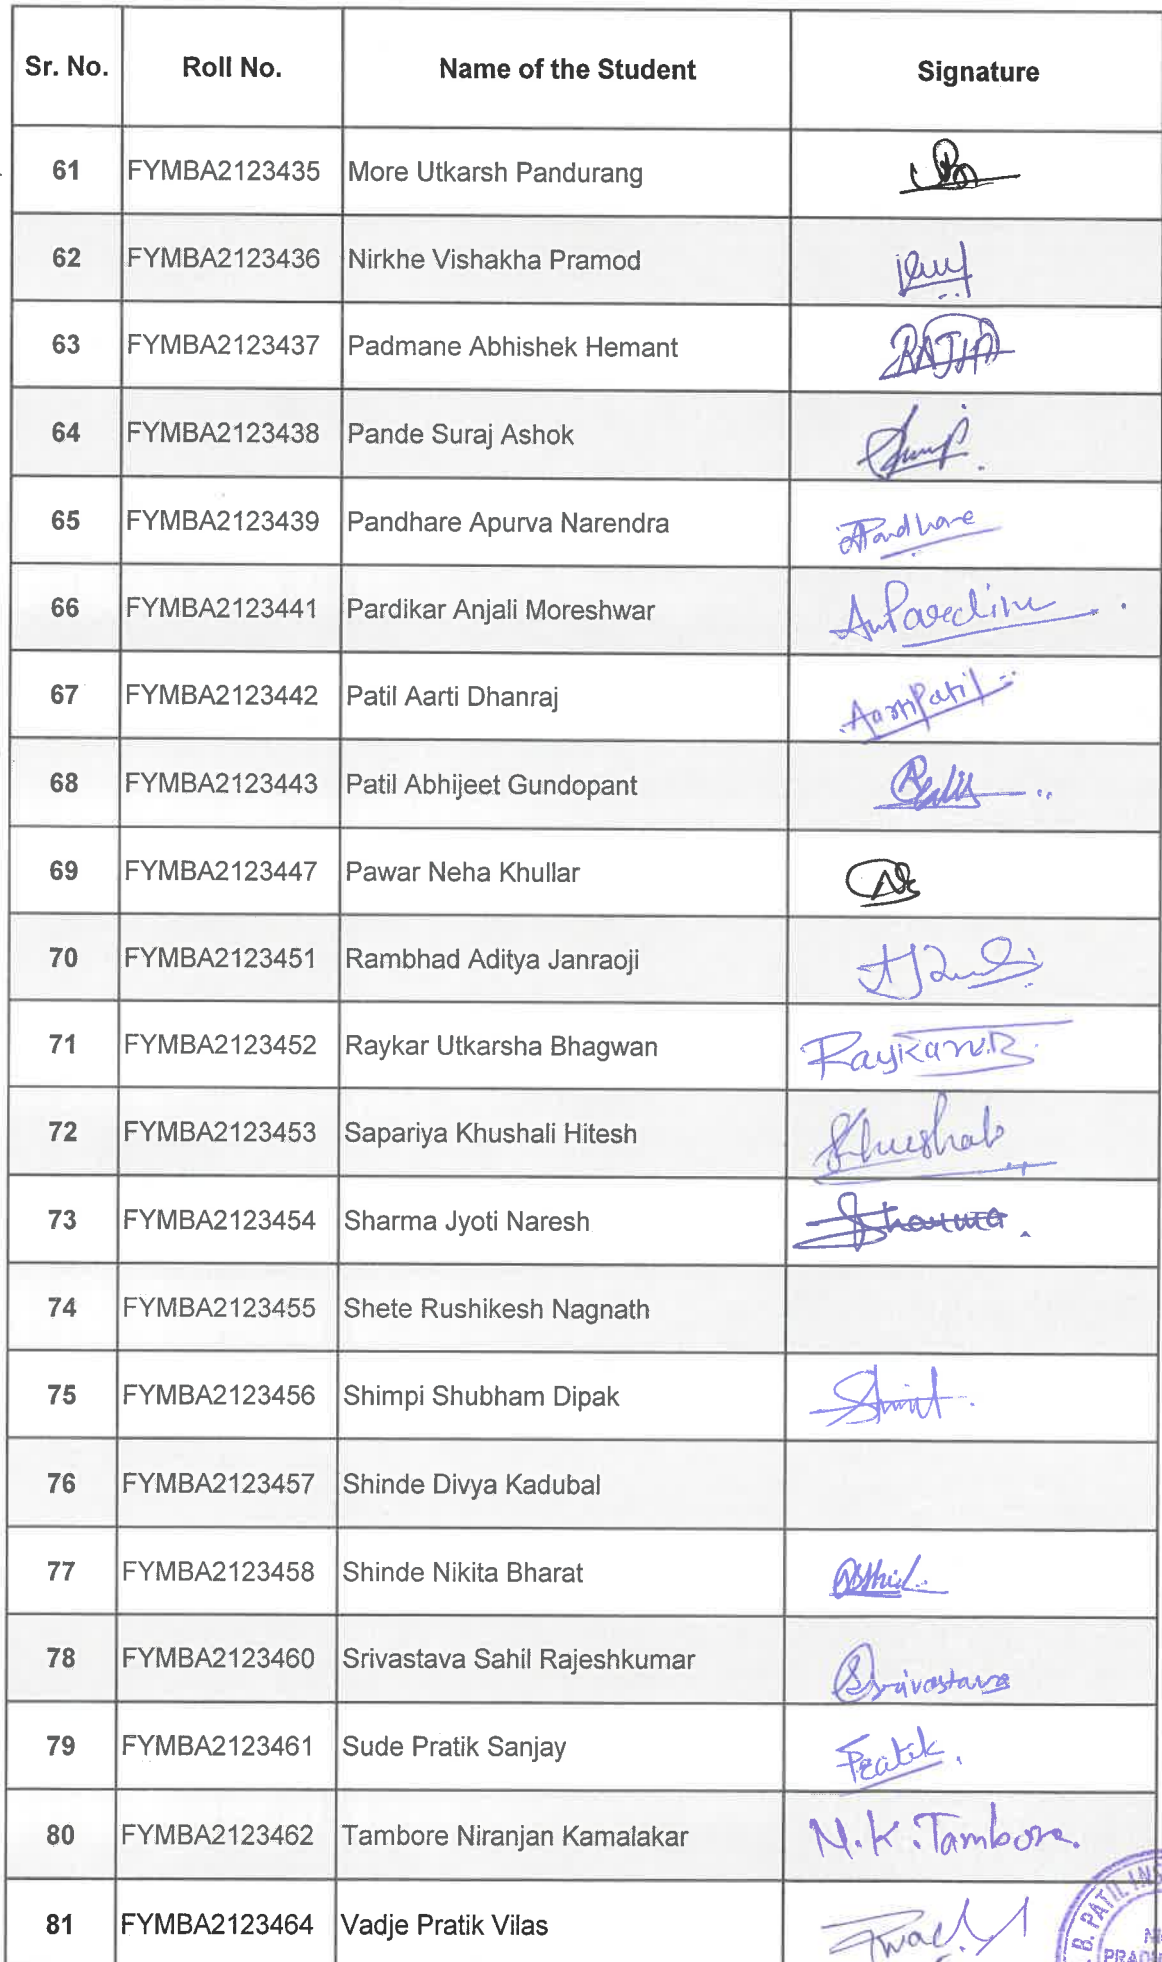 Sr. No. Roll No. Name of the Student Signature
61 FYMBA2123435 More Utkarsh Pandurang
62 FYMBA2123436 Nirkhe Vishakha Pramod
63 FYMBA2123437 Padmane Abhishek Hemant
64 FYMBA2123438 Pande Suraj Ashok
65 FYMBA2123439 Pandhare Apurva Narendra APandhare
66 FYMBA2123441 Pardikar Anjali Moreshwar
67 FYMBA2123442 Patil Aarti Dhanraj AartiPatil
68 FYMBA2123443 Patil Abhijeet Gundopant
69 FYMBA2123447 Pawar Neha Khullar
70 FYMBA2123451 Rambhad Aditya Janraoji
71 FYMBA2123452 Raykar Utkarsha Bhagwan RaykarU.B.
72 FYMBA2123453 Sapariya Khushali Hitesh
73 FYMBA2123454 Sharma Jyoti Naresh Sharma
74 FYMBA2123455 Shete Rushikesh Nagnath
75 FYMBA2123456 Shimpi Shubham Dipak
76 FYMBA2123457 Shinde Divya Kadubal
77 FYMBA2123458 Shinde Nikita Bharat
78 FYMBA2123460 Srivastava Sahil Rajeshkumar Srivastava
79 FYMBA2123461 Sude Pratik Sanjay Pratik.
80 FYMBA2123462 Tambore Niranjan Kamalakar N.K.Tambore.
81 FYMBA2123464 Vadje Pratik Vilas
B. PATIL INS